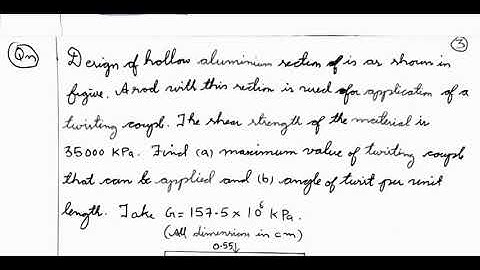 Qn
3
Design of hollow aluminium section of is as shown in
figure. A rod with this section is used for application of a
twisting couple. The shear strength of the material is
35000 KPa. Find (a) maximum value of twisting couple
that can be applied and (b) angle of twist per unit
length. Take G = 157.5 x 10⁶ kPa.
(All dimension in cm)
0.55↓